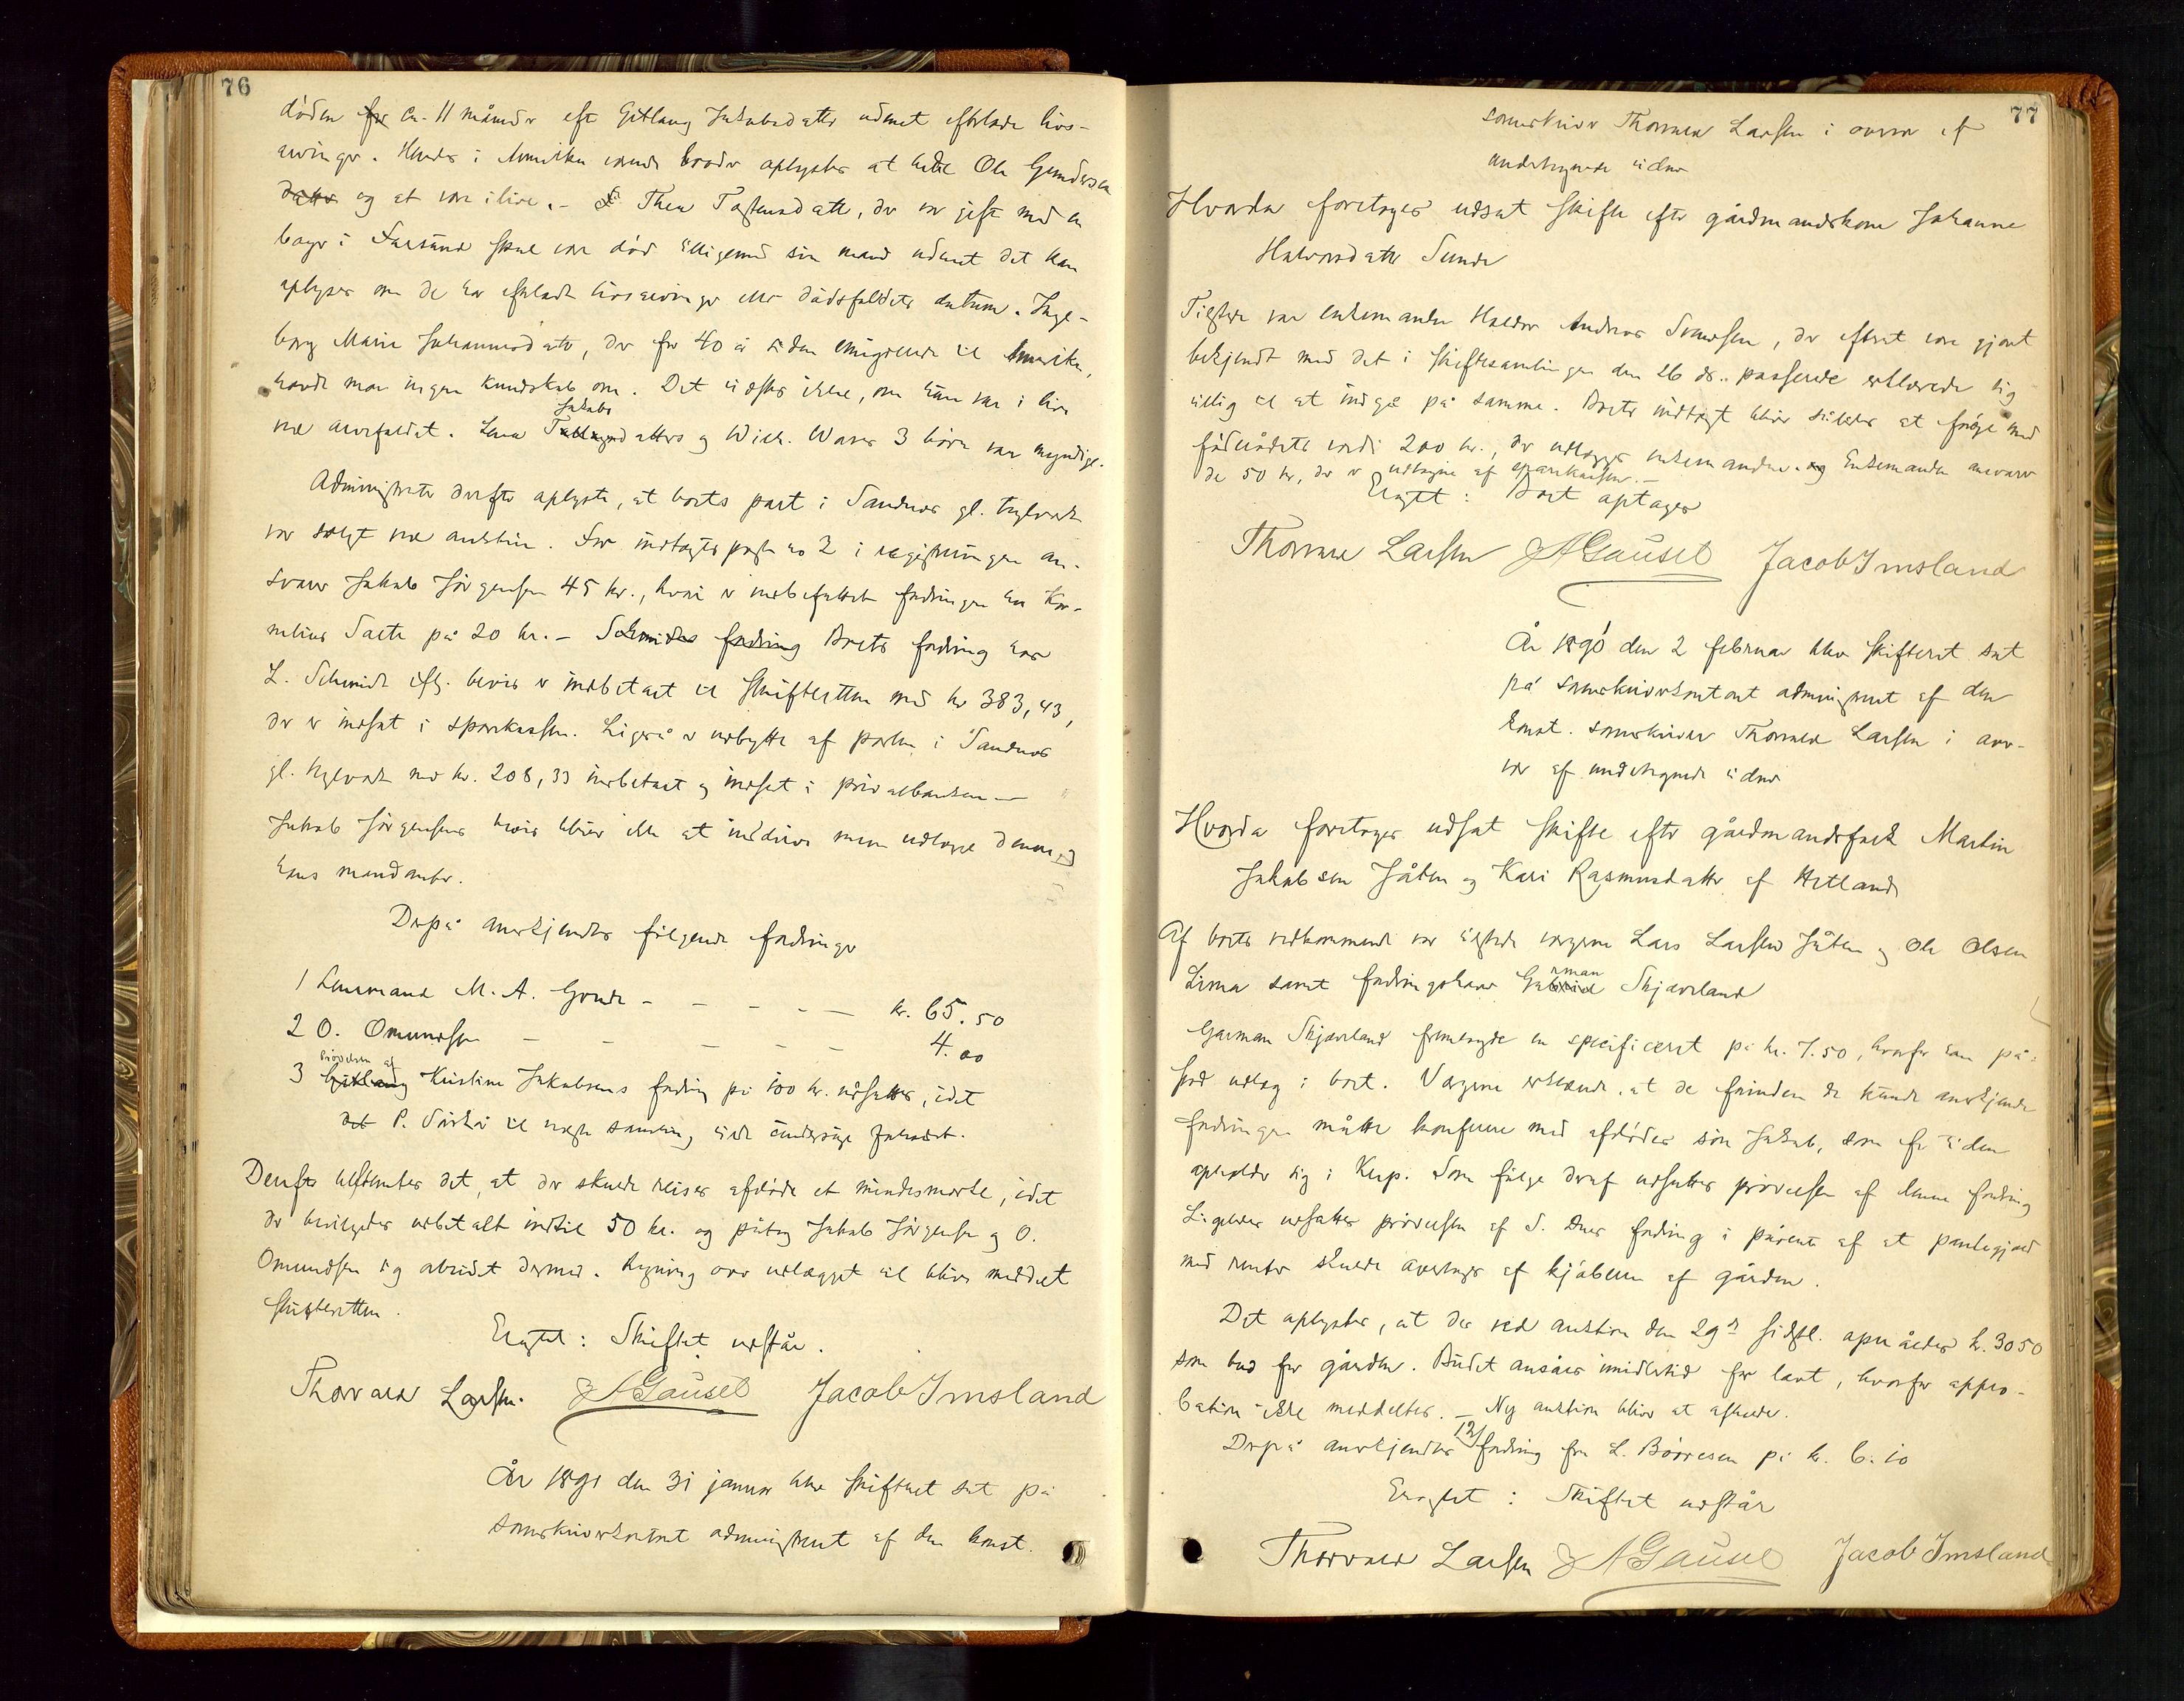 76
døden for ca. 11 måneder efter Gitlaug Jakobsdatter udenat efterlade livs-
arvinger. Hendes i Amerika værende broder oplystes at hedde Ole Gundersen
datter og at være ilive. – Thea Tostensdatter, der var gift med en
bager i Farsund skal være død tilligemed sin mand udenat det kan
oplyses om de har efterladt livsarvinger eller dødsfaldets datum. Inge-
borg Marie Johannesdatter, der for 40 år siden emigrerede til Amerika,
havde man ingen kundskab om. Det vidstes ikke, om hun var i live
ved arvefaldet. Lena Jakobs Tallagsdatters og Wilh. Wawers 3 børn var myndige.
Administrator derefter oplyste, at boets part i Sandnes gl. teglverk
var solgt ved auktion. For indtægtspost no 2 i registreringen an-
svarer Jakob Jørgensen 45 kr., hvori er indbefattet fordringen hos Kor-
nelius Sælte på 20 kr. – Schmidts fordring Boets fordring hos
L. Schmidt iflg. bevis er indbetalt til skifteretten med kr 383,43,
der er indsat i sparekassen. Ligeså er udbytte af parten i Sandnes
gl. teglverk med kr. 208,33 indbetalt og indsat i privatbanken –
Jakob Jørgensens bevis bliver ikke at inddrive men udlægges denne og
hans mandanter.
Derpå anerkjendtes følgende fordringer
1 Lensmand M. A. Grude - - - - — kr. 65.50
2 O. Omundsen - - - - - 4.00
3 prøvelsen af Gitlaug Kristine Jakobsens fordring på 100 kr. udsættes, idet
det P. Sirkå til næste samling vilde undersøge forholdet.
Derefter bestemtes det, at der skulde reises afdøde et mindesmærke, idet
der bevilgedes udbetalt indtil 50 kr. og påtog Jakob Jørgensen og O.
Omundsen sig arbeidet dermed. Regning over udlægget vil blive meddelt
skifteretten.
Eragtet: Skiftet udstår.
Thorvald Larsen. A Gausel Jacob Imsland
År 1891 den 31 januar blev skifteret sat på
sorenskriverkontoret administreret af den konst.
77
sorenskriver Thorvald Larsen i overvær af
undertegnede vidner
Hvorda foretages udsat skifte efter gårdmandskone Johanne
Halvorsdatter Sunde
Tilstede var enkemanden Haldor Andreas Svendsen, der efterat være gjort
bekjendt med det i skiftesamlingen den 26 ds. passerede erklærede sig
villig til at indgå på samme. Boets indtægt bliver således at forøge med
føderådets værdi 200 kr., der udlægges enkemanden. og Enkemanden ansvarer
de 50 kr, der er udtagne af sparekassen. –
Eragtet: Boet optages
Thorvald Larsen A Gausel Jacob Imsland
År 1891 den 2 februar blev skifteret sat
på sorenskriverkontoret administreret af den
konst. sorenskriver Thorvald Larsen i over-
vær af undertegnede vidner
Hvorda foretages udsat skifte efter gårdmandsfolk Martin
Jakobsen Jåtten og Kari Rasmusdatter af Hetland
Af boets vedkommende var tilstede værgerne Lars Larsen Jåtten og Ole Olsen
Lima samt fordringshaver Garman Skjæveland
Garman Skjæveland fremlagde en specificeret på kr. 7.50, hvorfor han på-
stod udlæg i boet. Værgerne erklærede, at de forinden de kunde anerkjende
fordringen måtte konferere med afdødes søn Jakob, som for tiden
opholder sig i Klep. Som følge deraf udsættes prøvelsen af denne fordring
Ligeledes udsættes prøvelsen af S. Dues fordring i påvente af at pantegjæld
med renter skulde overtages af kjøberen af gården.
Det oplystes, at der ved auktion den 29de sidstl. opnåedes kr. 3050
som bud for gården. Budet ansåes imidlertid for lavt, hvorfor appro-
bation ikke meddeltes. – Ny auktion bliver at afholde.
Derpå anerkjendtes 12) fordring fra L. Børresen på kr. 6.10
Eragtet: Skiftet udstår
Thorvald Larsen A Gausel Jacob Imsland